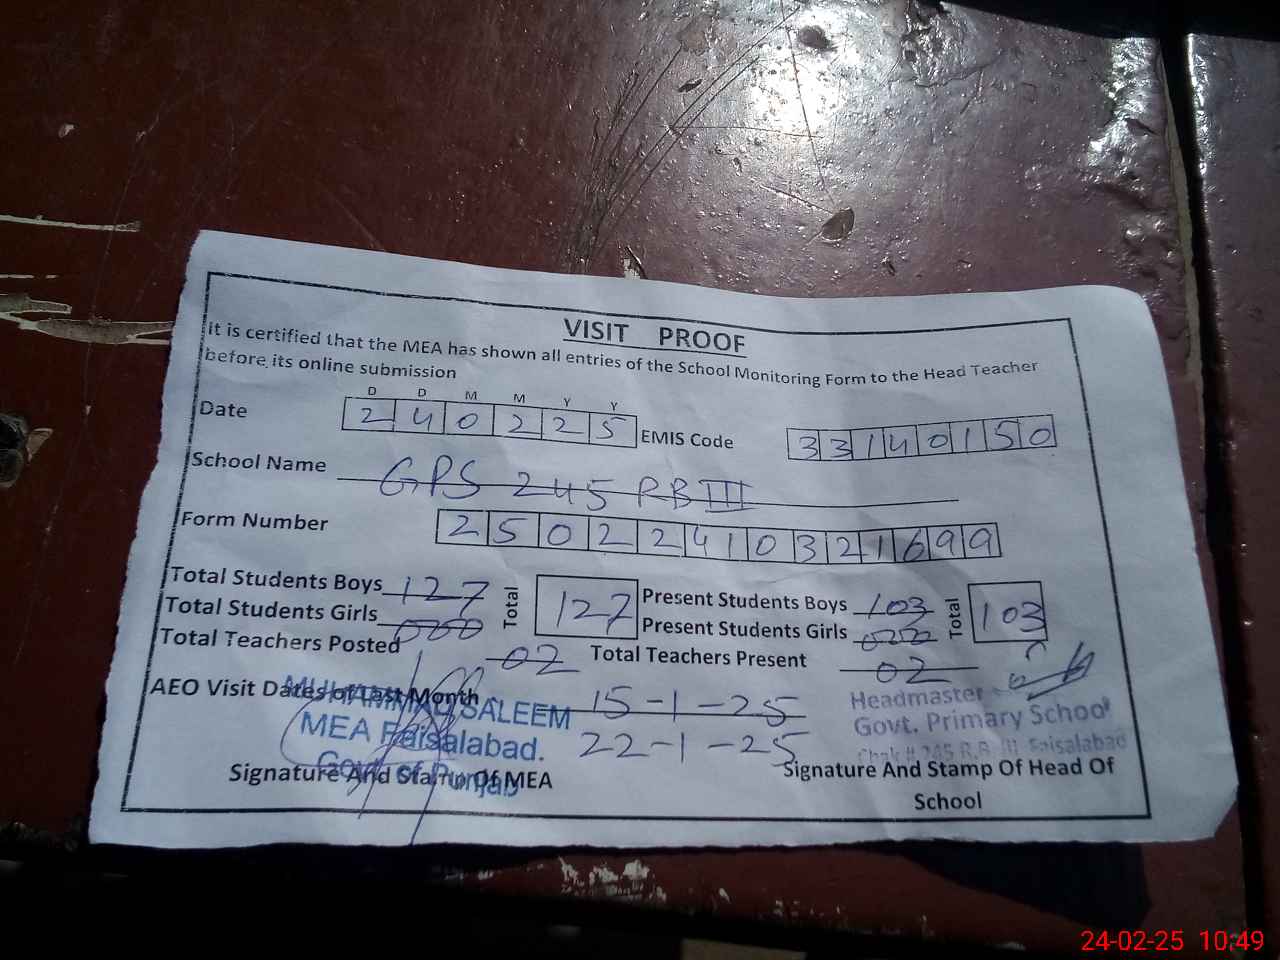 VISIT PROOF
It is certified that the MEA has shown all entries of the School Monitoring Form to the Head Teacher
before its online submission
D D M M Y Y
Date 2 4 0 2 2 5 EMIS Code 3 3 1 4 0 1 5 0
School Name GPS 245 RB III
Form Number 2 5 0 2 2 4 1 0 3 2 1 6 9 9
Total Students Boys 127 Total 127 Present Students Boys 103 Total 103
Total Students Girls 000 Present Students Girls 000
Total Teachers Posted 02 Total Teachers Present 02
AEO Visit Dates of Last Month 15-1-25
22-1-25
MUHAMMAD SALEEM
MEA Faisalabad.
Govt of Punjab
Signature And Stamp Of MEA
Headmaster
Govt. Primary School
Chak # 245 R.B. III Faisalabad
Signature And Stamp Of Head Of
School
24-02-25 10:49